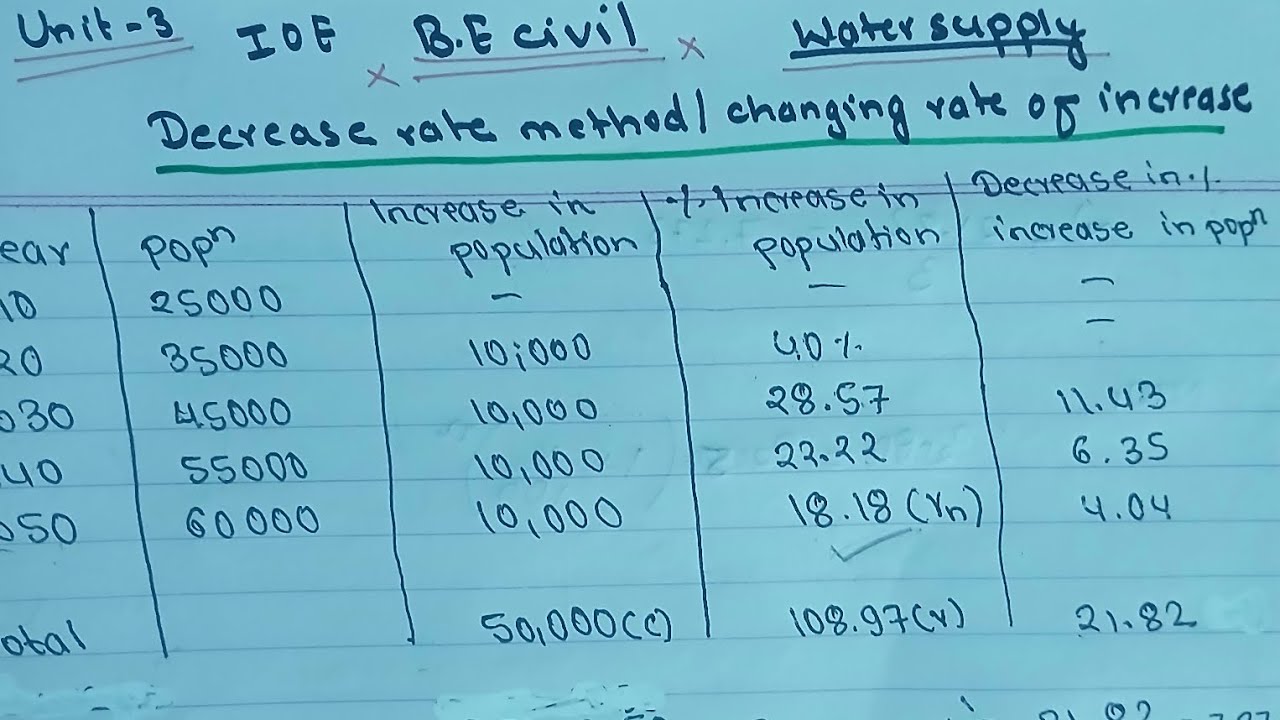 Unit-3 IOE × B.E civil × Water supply
Decrease rate method/changing rate of increase
ear | popⁿ | Increase in population | % Increase in population | Decrease in % increase in popⁿ
10 | 25000 | - | - | -
20 | 35000 | 10,000 | 40% | -
030 | 45000 | 10,000 | 28.57 | 11.43
40 | 55000 | 10,000 | 22.22 | 6.35
050 | 60000 | 10,000 | 18.18 (rn) | 4.04
otal | 50,000(c) | 108.97(r) | 21.82